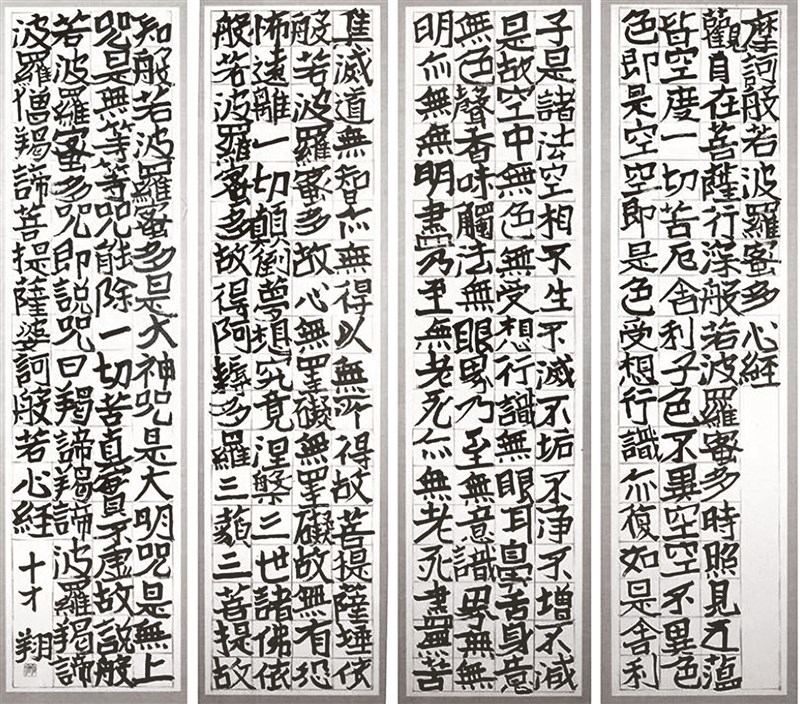 摩訶般若波羅蜜多心經
觀自在菩薩行深般若波羅蜜多時照見五蘊
皆空度一切苦厄舎利子色不異空空不異色
色即是空空即是色受想行識亦復如是舎利
子是諸法空相不生不滅不垢不浄不増不減
是故空中無色無受想行識無眼耳鼻舌身意
無色聲香味觸法無眼界乃至無意識界無無
明亦無無明盡乃至無老死亦無老死盡無苦
集滅道無智亦無得以無所得故菩提薩埵依
般若波羅蜜多故心無罣礙無罣礙故無有恐
怖遠離一切顛倒夢想究竟涅槃三世諸佛依
般若波羅蜜多故得阿耨多羅三藐三菩提故
知般若波羅蜜多是大神呪是大明呪是無上
呪是無等等呪能除一切苦真實不虚故説般
若波羅蜜多呪即説呪曰羯諦羯諦波羅羯諦
波羅僧羯諦菩提薩婆訶般若心經
十才 翔